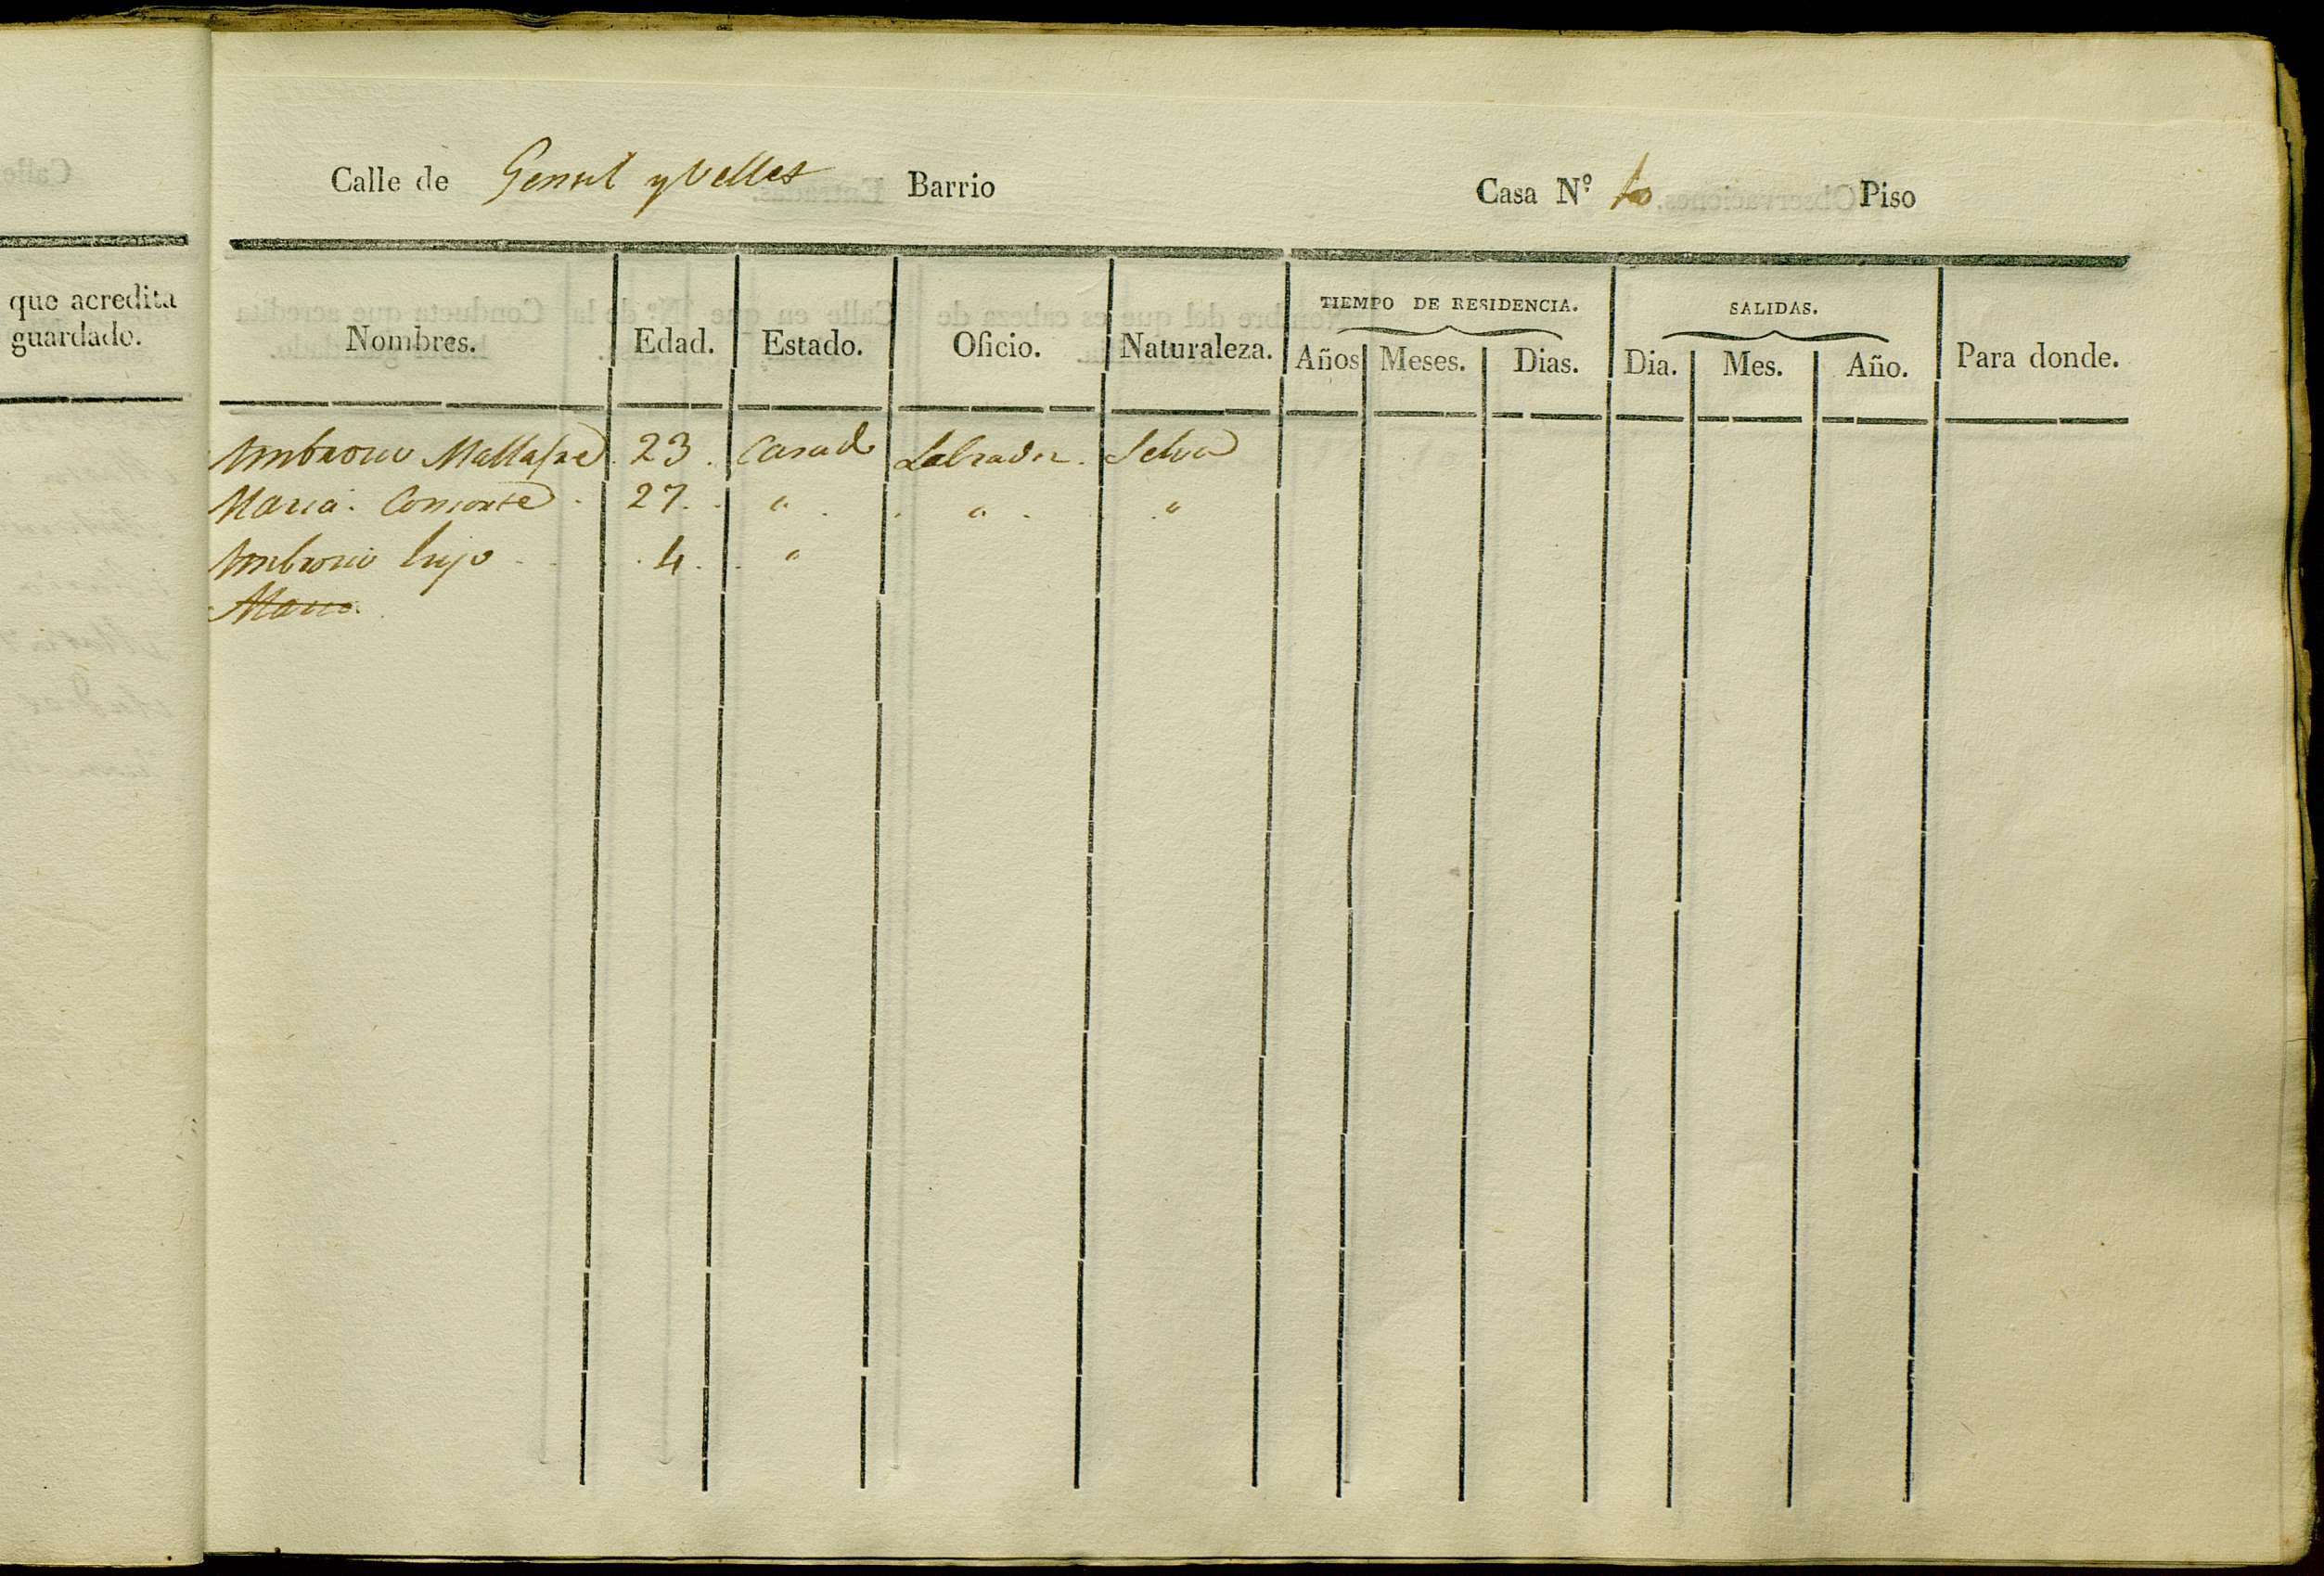 que acredita
guardado.
Calle de Barrio Casa Nº 10 Piso
TIEMPO DE RESIDENCIA. SALIDAS.
Nombres. Edad. Estado. Oficio. Naturaleza. Años Meses. Dias. Dia. Mes. Año. Para donde.
Ambrosio Mallafre 23. Casado Labrador. Selva
Maria. Consorte. 27. " " "
Ambrosio hijo 4. "
Maria.